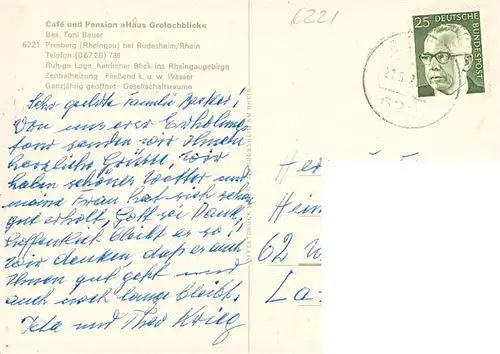 Café und Pension »Haus Grolochblick«
Bes. Toni Bauer
6221 Presberg (Rheingau) bei Rüdesheim/Rhein
Telefon (0 67 26) 738
Ruhige Lage, herrlicher Blick ins Rheingaugebirge
Zentralheizung Fließend k. u. w. Wasser
Ganzjährig geöffnet · Gesellschaftsräume
6221
25 DEUTSCHE BUNDESPOST
Sehr geehrte Familie Becker!
Von unserer Erholung
senden wir Ihnen
herzliche Grüße, wir
haben schönes Wetter und
meine Frau hat sich schon
gut erholt, Gott sei Dank,
hoffentlich bleibt es so,
wir denken, daß es auch
Ihnen gut geht und
auch noch lange bleibt.
und Theo Krieg
Her
Hein
62 W
La